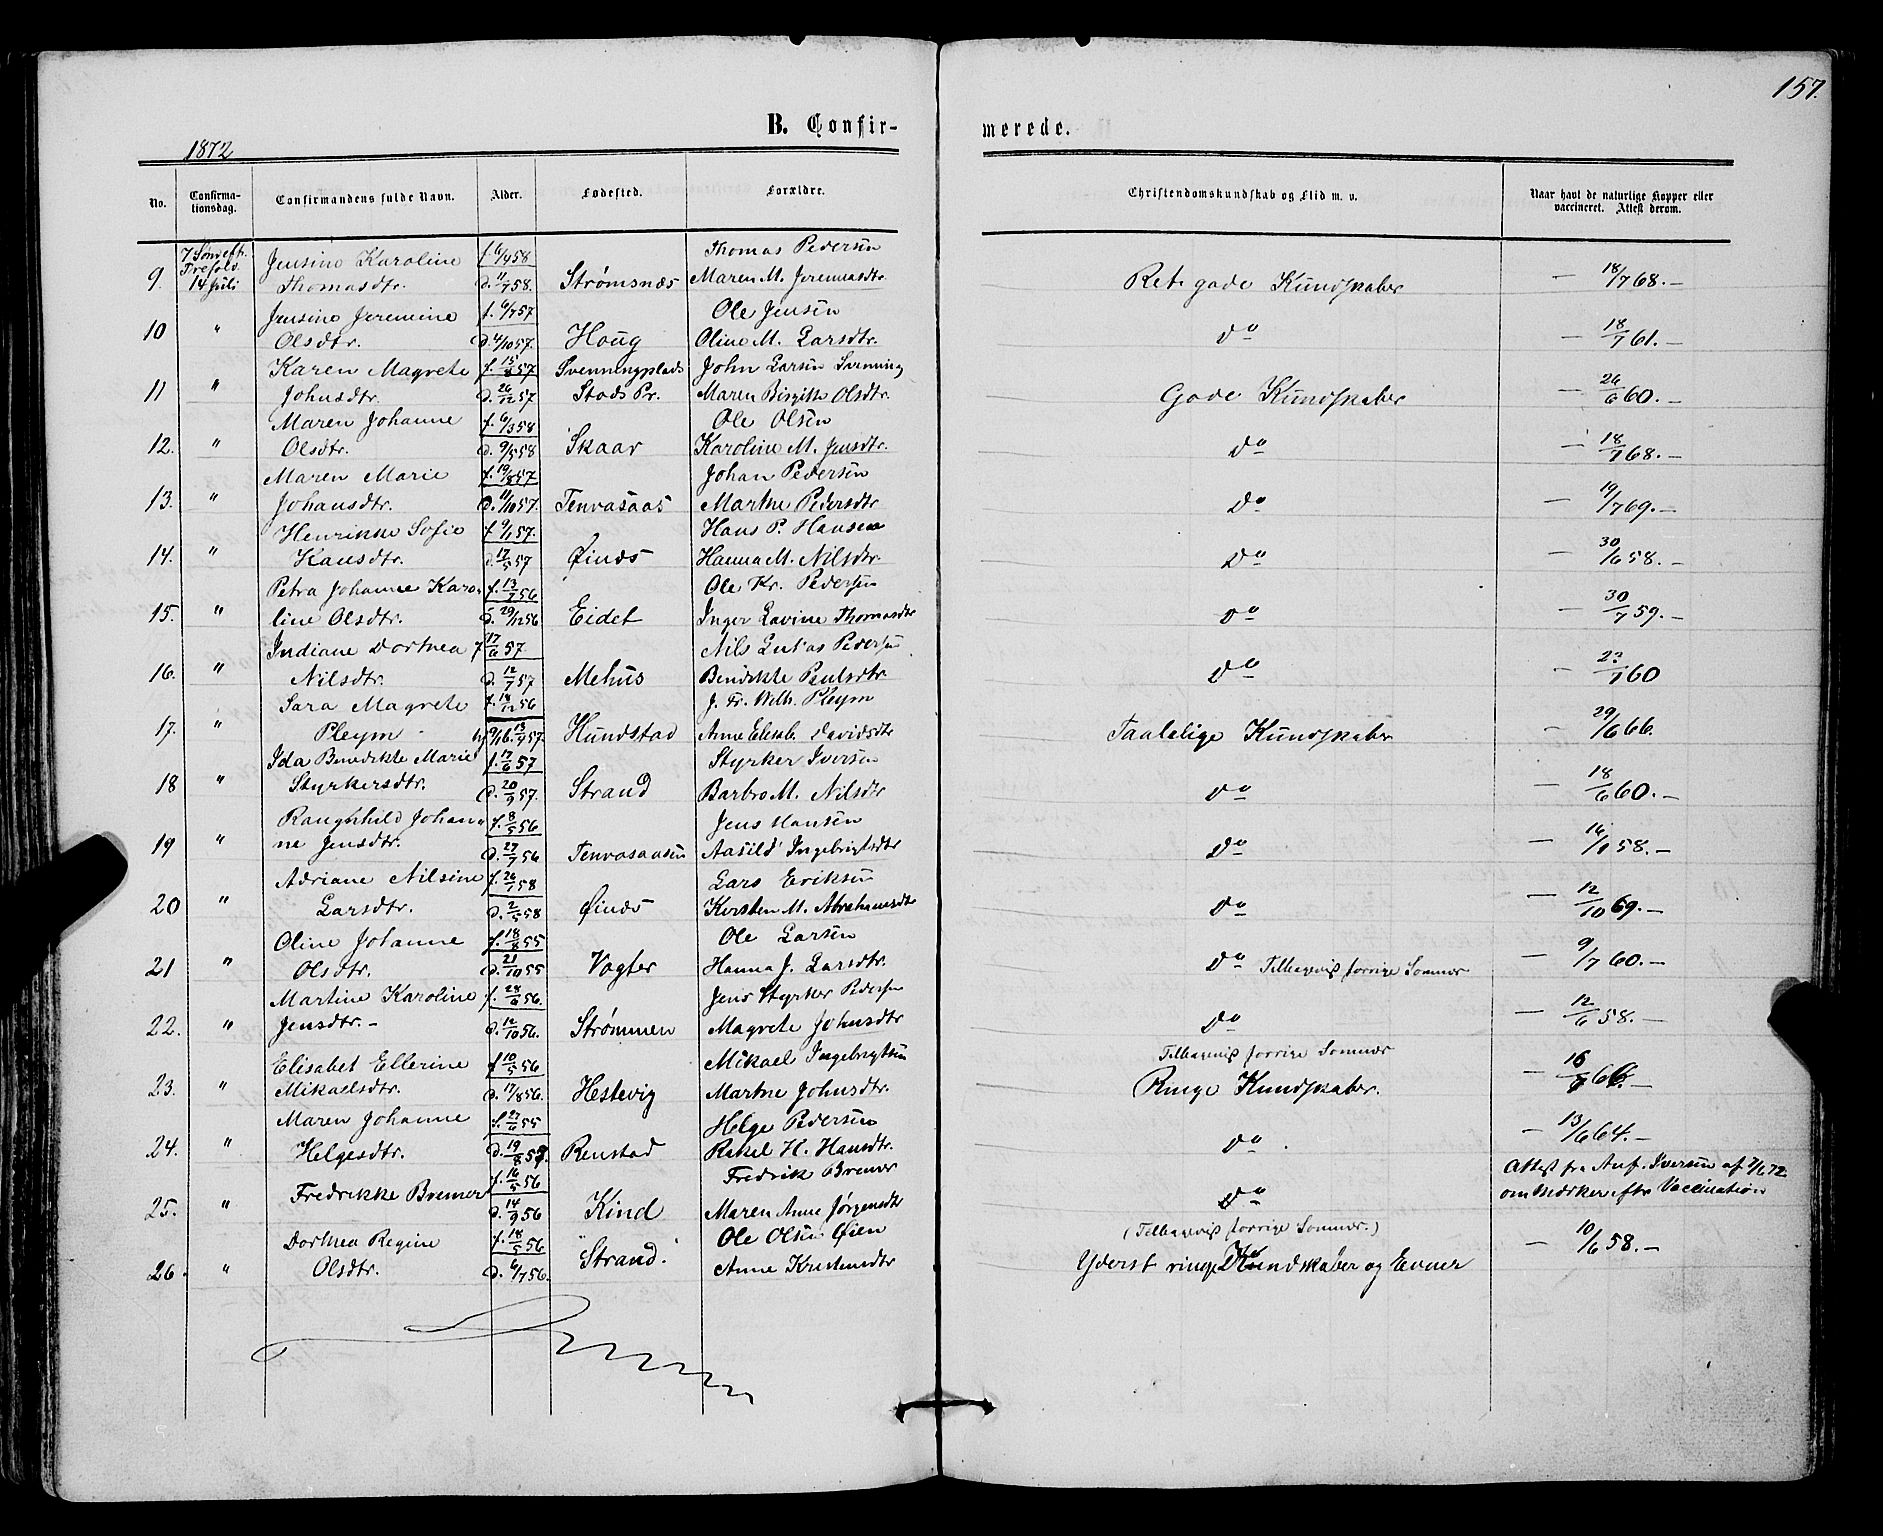 157.
B. Confir-
merede.
1872
No.
Confirma-
tionsdag.
Confirmandens fulde Navn.
Alder.
Fødested.
Forældre.
Christendomskundskab og Flid m. v.
Naar havt de naturlige Kopper eller
vaccineret. Attest derom.
7 Sønd. eft.
Trefold.
14 Juli
Jensine Karoline f. 6/4 58 Thomas Pedersen
9. Thomasdtr. d. 11/7 58. Strømsnæs Maren M. Jeremiasdtr Ret gode Kundskaber — 18/7 68. —
Jensine Jeremine f. 6/7 57 Ole Jensen
10 " Olsdtr. d. 4/10 57. Houg Oline M. Larsdtr. do — 18/7 61. —
Karen Magrete f. 15/8 57 Svenningplads John Larsen Svenning
11 " Johnsdtr. d. 26/12 57 Stods Pr. Maren Birgitte Olsdtr. Gode Kundskaber — 26/6 60. —
Maren Johanne f. 6/3 58 Ole Olsen
12. " Olsdtr. d. 9/5 58 Skaar Karoline M. Jensdtr. do — 18/7 68. —
Maren Marie f. 19/8 57 Johan Pedersen
13. " Johansdtr. d. 11/10 57. Tenvasaas Marthe Pedersdtr do — 19/7 69. —
Henrikke Sofie f. 9/1 57. Hans P. Hansen
14. " Hansdtr. d. 17/5 57 Øinæs Hanna M. Nilsdtr. do — 30/6 58. —
Petra Johanne Karo- f. 13/7 56 Ole Kr. Pedersen
15. " line Olsdtr. d. 29/12 56 Eidet Inger Lavine Thomasdtr do — 30/7 59. —
Indiane Dorthea f 17/6 57 Nils Lukas Pedersen
16. " Nilsdtr. d. 12/7 57 Mehus Bendikte Paulsdtr do — 60
Sara Magrete f. 14/12 56 J. Fr. Wilh. Pleym
17. " Pleym 13/4 57. Hundstad Anne Elisab. Davidsdtr Taalelige Kundskaber — 29/6 66.
Ida Benedikte Marie f. 17/6 57 Styrker Iversen
18 " Styrkersdtr. d. 20/9 57. Strand Barbro M. Nilsdtr do — 18/6 60. —
Raughhild Johan- f. 8/5 56 Jens Hansen
19 " ne Jensdtr. d. 27/7 56 Tenvasaasen Aasild Ingebrigtsdtr do — 58. —
Adriane Nilsine f. 26/1 58 Lars Eriksen
20 " Larsdtr. d. 2/5 58 Øinæs Kirsten M. Abrahamsdtr do — 12/10 69. —
Oline Johanne f. 18/8 55 Ole Larsen
21 " Olsdtr. d. 21/10 55 Vagter Hanna J. Larsdtr. do Tilbagevist forrige Sommer — 9/7 60. —
Martine Karoline f. 24/6 56. Jens Styrker Pedersen
22. " Jensdtr. – d. 12/10 56. Strømmen Magrete Johnsdtr do — 12/6 58. —
Elisabet Ellerine f 10/5 56 Mikael Ingebrigtsen Tilbagevist forrige Sommer
23. " Mikaelsdtr. d. 17/8 56. Hestevig Marthe Johnsdtr. Ringe Kundskaber. — 66. —
Maren Johanne f. 27/6 55 Helge Pedersen
24. " Helgesdtr. d. 19/8 Renstad Rakel H. Hansdtr. do . — 13/6 64. —
f. 16/5 56 Fredrik Bremer Attest fra Anf. Iversen af 7/6 72
25. " Fredrikke Bremer d. 14/9 56 Kind Maren Anne Jørgensdtr do om Mærker efter Vaccination
Dorthea Regine f. 18/5 56 Ole Olsen Øien (Tilbagevist forrige Sommer.)
26. " Olsdtr. d. 6/7 56. Strand. Anne Kristensdtr Yderst ringe Kundskaber og Evner — 10/6 58. —